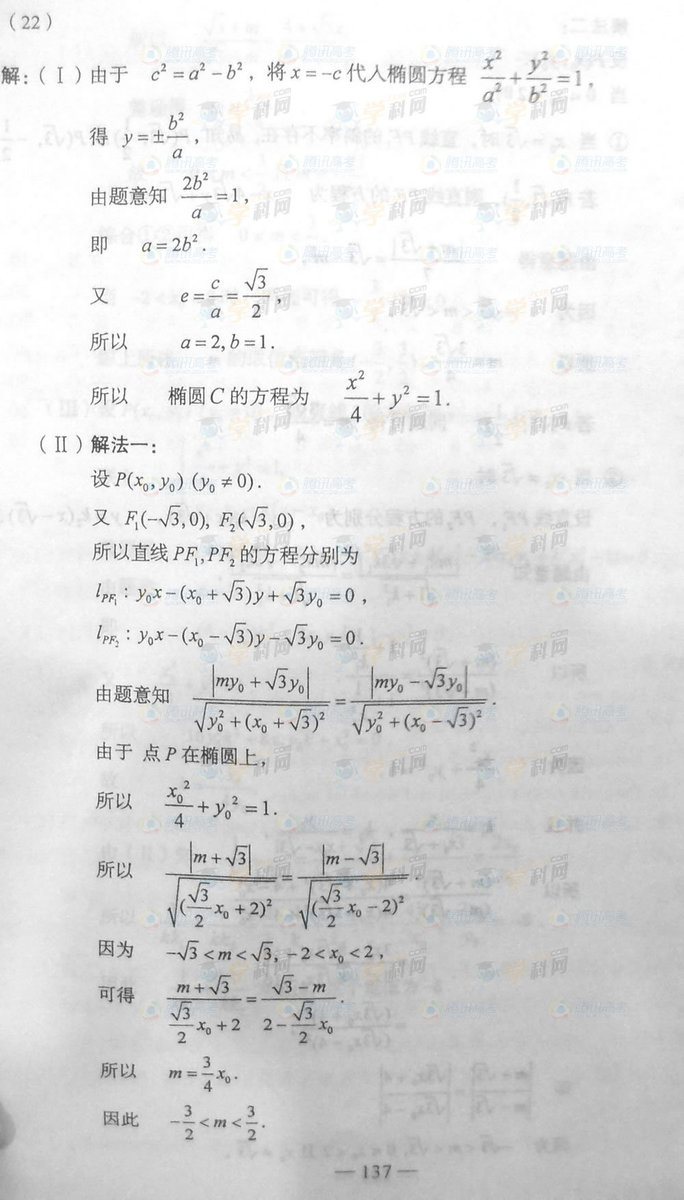 （22）
解：（Ⅰ）由于 c² = a² − b²，将 x = −c 代入椭圆方程 x²/a² + y²/b² = 1，
得 y = ± b²/a，
由题意知 2b²/a = 1，
即 a = 2b².
又 e = c/a = √3/2，
所以 a = 2, b = 1.
所以 椭圆 C 的方程为 x²/4 + y² = 1.
（Ⅱ）解法一：
设 P(x₀, y₀) (y₀ ≠ 0).
又 F₁(−√3, 0), F₂(√3, 0)，
所以直线 PF₁, PF₂ 的方程分别为
l_PF₁ : y₀x − (x₀ + √3)y + √3y₀ = 0，
l_PF₂ : y₀x − (x₀ − √3)y − √3y₀ = 0.
由题意知 |my₀ + √3y₀| / √(y₀² + (x₀ + √3)²) = |my₀ − √3y₀| / √(y₀² + (x₀ − √3)²).
由于 点 P 在椭圆上，
所以 x₀²/4 + y₀² = 1.
所以 |m + √3| / √((√3/2 x₀ + 2)²) = |m − √3| / √((√3/2 x₀ − 2)²).
因为 −√3 < m < √3, −2 < x₀ < 2，
可得 (m + √3) / (√3/2 x₀ + 2) = (√3 − m) / (2 − √3/2 x₀).
所以 m = 3/4 x₀.
因此 −3/2 < m < 3/2.
— 137 —
学科网
腾讯高考